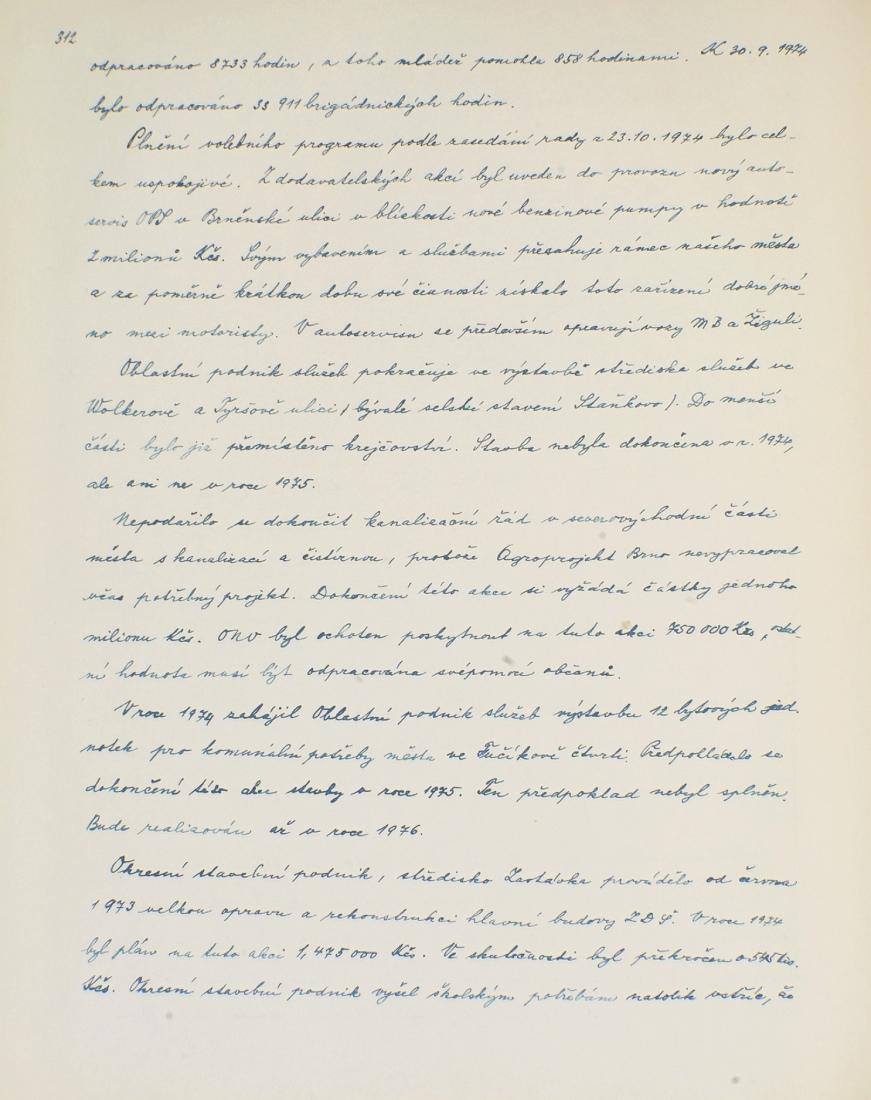 312
odpracováno 8733 hodin, z toho mládež pomohla 858 hodinami. K 30. 9. 1974
bylo odpracováno 33 911 brigádnických hodin.
Plnění volebního programu podle zasedání rady z 23.10.1974 bylo cel-
kem uspokojivé. Z dodavatelských akcí byl uveden do provozu nový auto-
servis OPS v Brněnské ulici v blízkosti nové benzinové pumpy v hodnotě
2 milionů Kčs. Svým vybavením a službami přesahuje rámec našeho města
a za poměrně krátkou dobu své činnosti získalo toto zařízení dobré jmé-
no mezi motoristy. V autoservisu se především opravují vozy MB a Žiguli.
Oblastní podnik služeb pokračuje ve výstavbě střediska služeb ve
Wolkerově a Tyršově ulici (bývalé selské stavení Staňkovo). Do menší
části bylo již přemístěno krejčovství. Stavba nebyla dokončena v r. 1974,
ale ani ne v roce 1975.
Nepodařilo se dokončit kanalizační řád v severovýchodní části
města s kanalizací a čistírnou, protože Agroprojekt Brno nevypracoval
včas potřebný projekt. Dokončení této akce si vyžádá částky jednoho
milionu Kčs. ONV byl ochoten poskytnout na tuto akci 750 000 Kčs, ostat-
ní hodnota musí být odpracována svépomocí občanů.
V roce 1974 zahájil Oblastní podnik služeb výstavbu 12 bytových jed-
notek pro komunální potřeby města ve Fučíkově čtvrti. Předpokládalo se
dokončení této stavby v roce 1975. Ten předpoklad nebyl splněn.
Bude realizován až v roce 1976.
Okresní stavební podnik, středisko Zastávka provádělo od června
1973 velkou opravu a rekonstrukci hlavní budovy ZDŠ. V roce 1974
byl plán na tuto akci 1,475 000 Kčs. Ve skutečnosti byl překročen o 545 tis.
Kčs. Okresní stavební podnik vyšel školským potřebám natolik vstříc, že